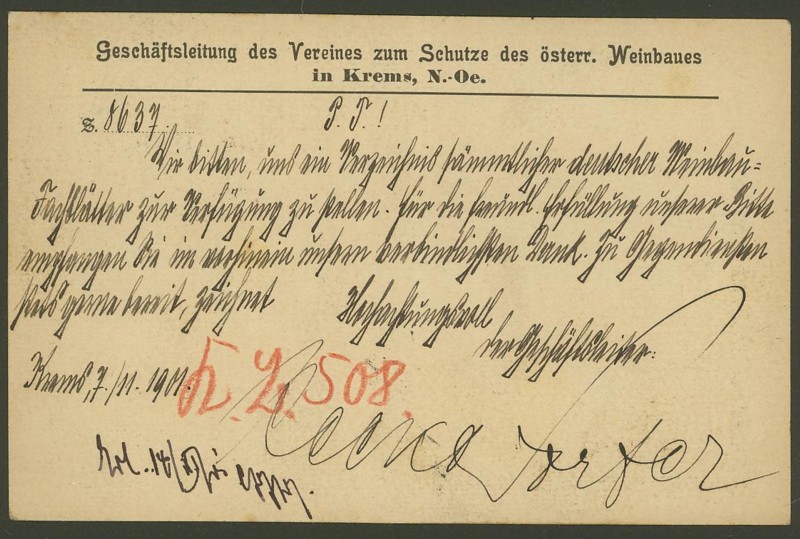 Geschäftsleitung des Vereines zum Schutze des österr. Weinbaues
in Krems, N.-Oe.
Z. 8637. P. T.!
Wir bitten, uns ein Verzeichnis sämmtlicher deutscher Weinbau-
Fachblätter zur Verfügung zu stellen. Für die freundl. Erfüllung unserer Bitte
empfangen Sie im vorhinein unsern verbindlichsten Dank. Zu Gegendiensten
stets gerne bereit, zeichnet Hochachtungsvoll
der Geschäftsleiter:
Krems, 7./11. 1901.
K. Z. 508.